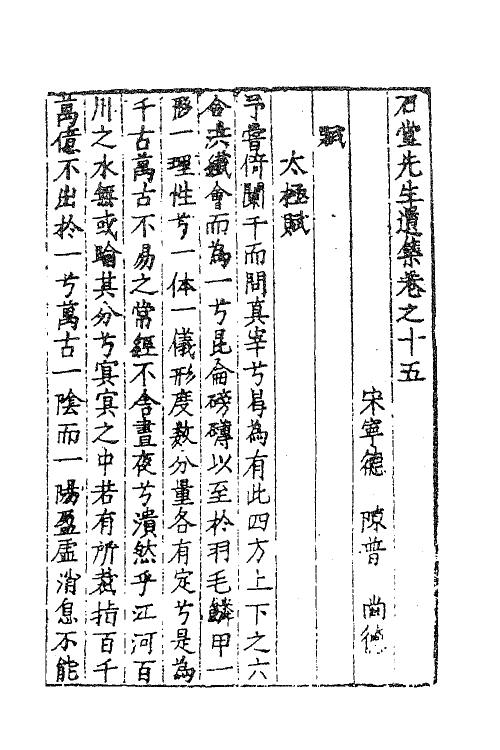 石堂先生遺集卷之十五
宋寧德　陳普　尚德
賦
太極賦
予嘗倚闌干而問真宰兮曷為有此四方上下之六
合洪纖會而為一兮昆侖磅礴以至於羽毛鱗甲一
形一理性兮一体一儀形度數分量各有定兮是為
千古萬古不易之常經不舎晝夜兮潰然乎江河百
川之水無或踰其分兮寞寞之中若有所裁指百千
萬億不出於一兮萬古一陰而一陽盈虛消息不能